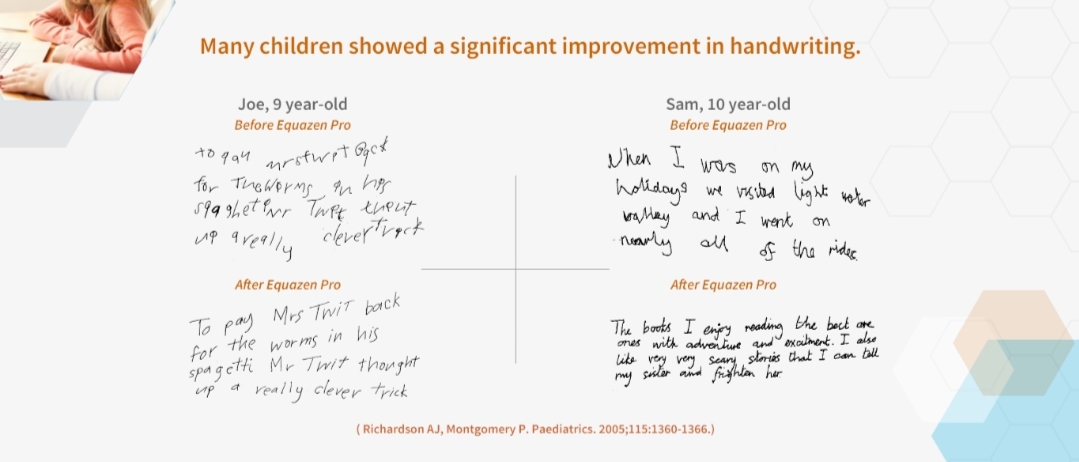 Many children showed a significant improvement in handwriting.
Joe, 9 year-old
Before Equazen Pro
to pay mrstwit
for TheWorms in his
up a really cleverTrick
After Equazen Pro
To pay Mrs Twit back
for the worms in his
spagetti Mr Twit thought
up a really clever trick
Sam, 10 year-old
Before Equazen Pro
When I was on my
holidays we visited light water
valley and I went on
nearly all of the rides.
After Equazen Pro
The books I enjoy reading the best are
ones with adventure and excitment. I also
like very very scary stories that I can tell
my sister and frighten her
( Richardson AJ, Montgomery P. Paediatrics. 2005;115:1360-1366.)